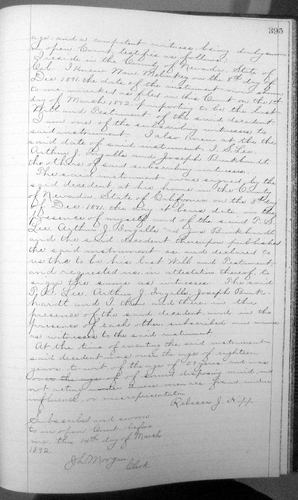 395
age and a competent witness being duly sworn
in open Court testifies as follows: I
reside in the County of Nevada State of
Cal. I knew on the 9th day of
Dec 1891, the date of the instrument now shown
to me marked as filed in this Court on the 10th
day of March 1892, purporting to be the last
Will and Testament of the said decedent
I am one of the subscribing witnesses to
said instrument. I also knew at the
said date of said instrument P. S. Lee
Arthur J. and Joseph Burkhardt
the other subscribing witnesses.
The said instrument was signed by the
said decedent at his home in the County
of Nevada, State of California on the 9th day
of Dec 1891, the day it bears date in the
presence of myself and of the said P. S.
Lee Arthur J. and Jos Burkhardt
and the said decedent thereupon published
the said instrument and declared to
us the to be his last Will and Testament
and requested us in attestation thereof to
sign the same as witnesses. The said
P. S. Lee, Arthur J. Joseph Burk-
hardt and I then and there in the
presence of the said decedent and in the
presence of each other subscribed our names
as witnesses to the said instrument.
At the time of executing the said instrument
said decedent was over the age of eighteen
years to wit of the age of years and was
of sound and disposing mind, and
not acting under duress menace fraud undue
influence or misrepresentation
Rebecca J.
Subscribed and sworn
to in open Court before
me this 10th day of March
1892.
J L Morgan
Clerk